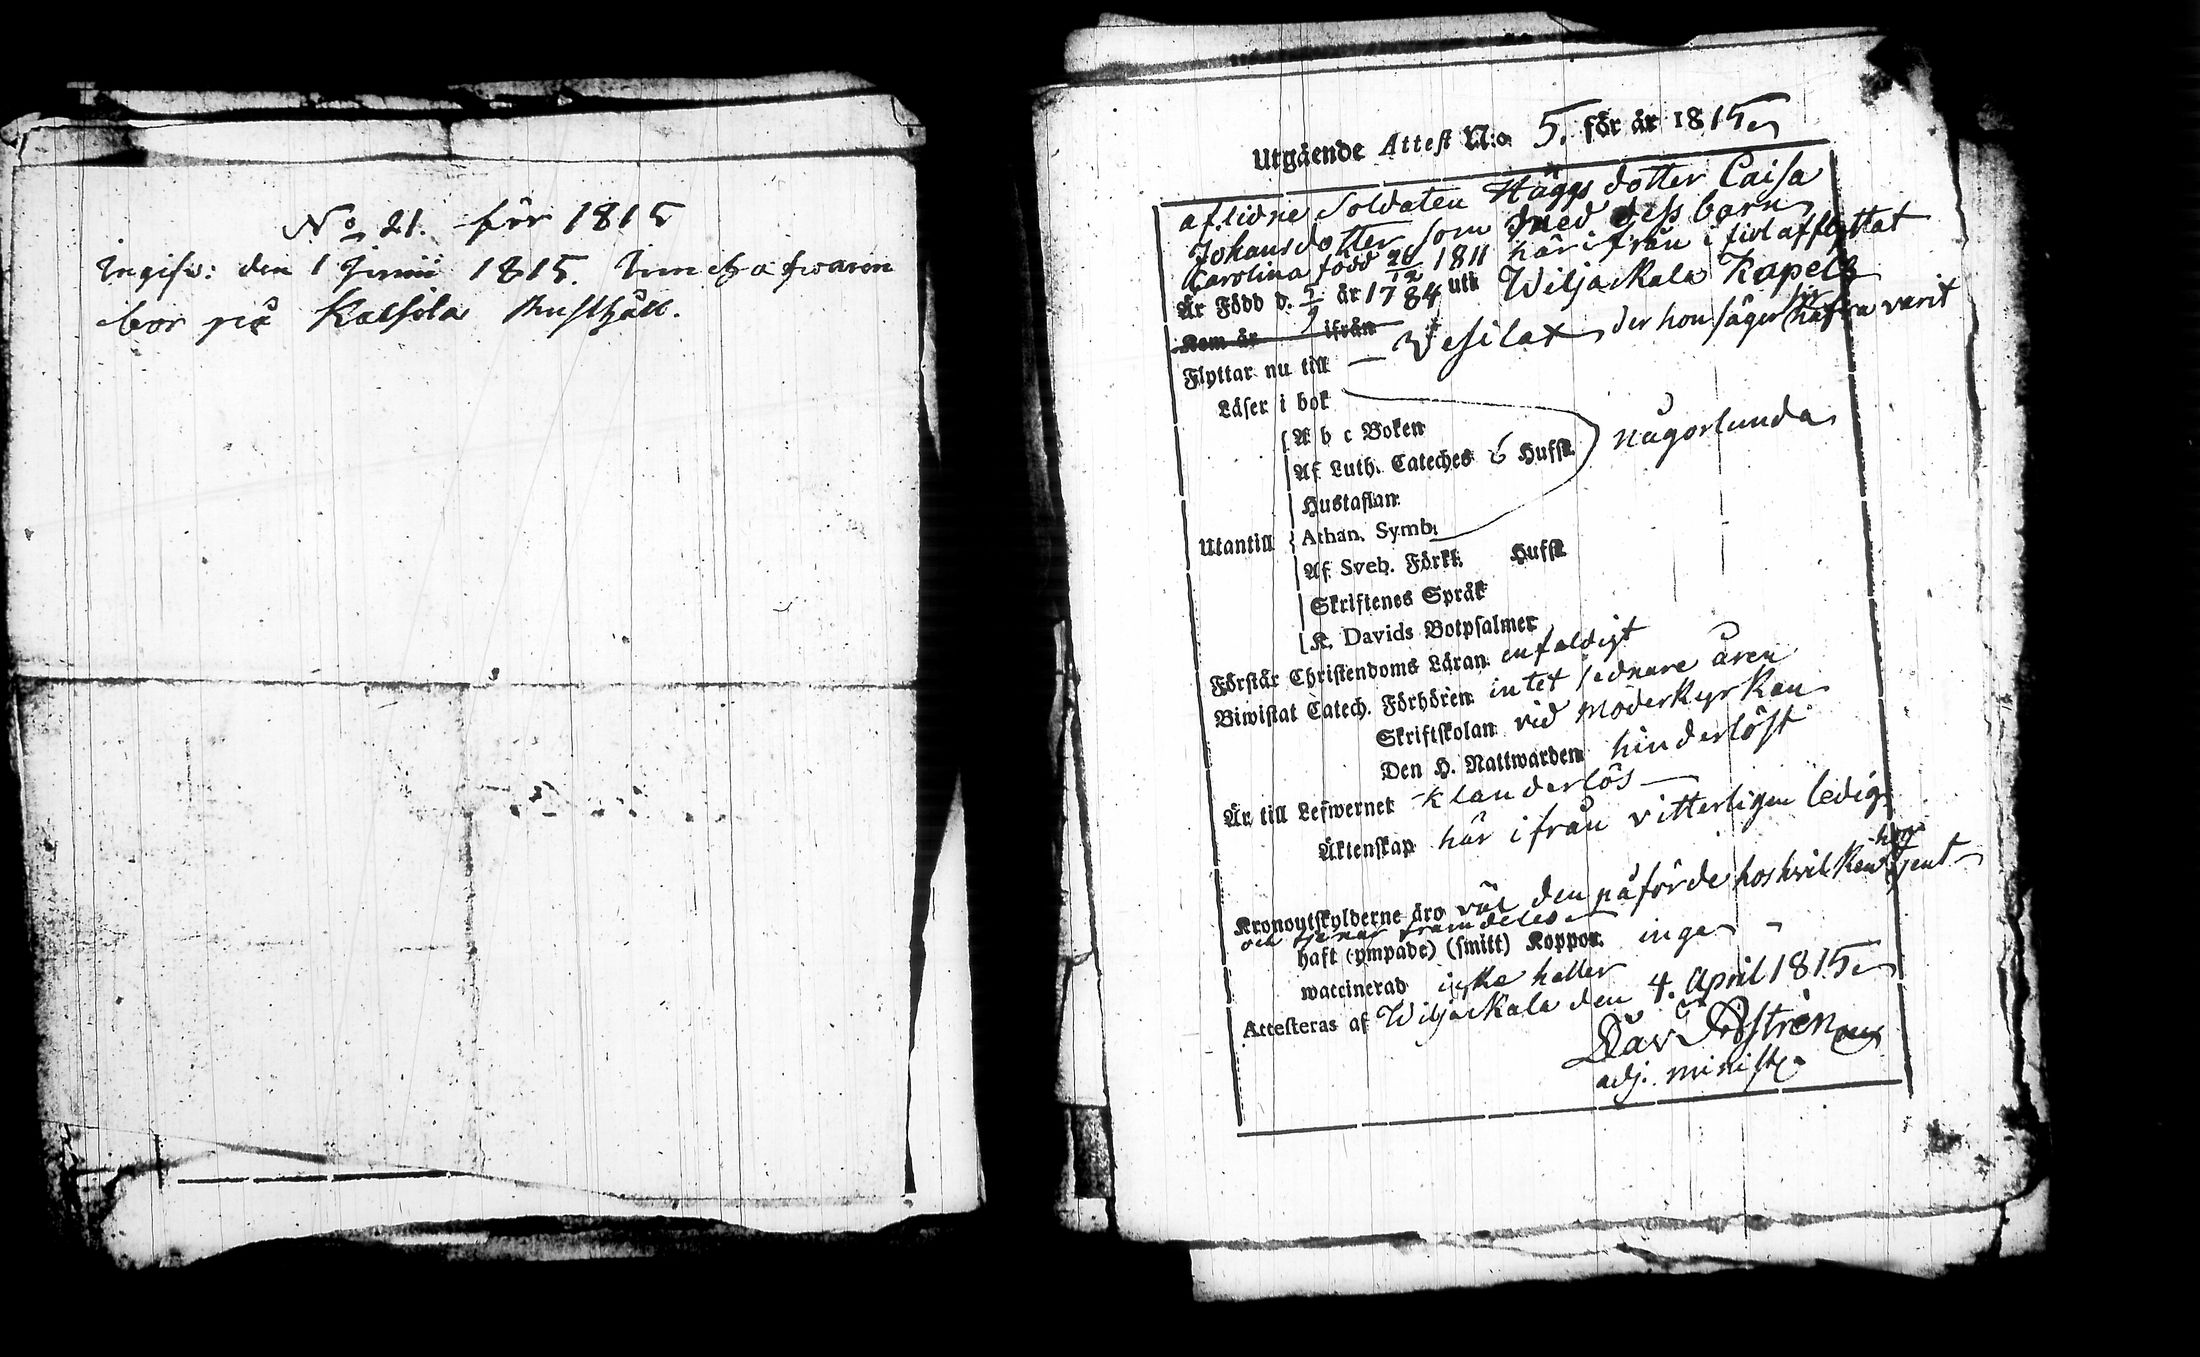 No 21. för 1815
Ingifw: den 1 Junii 1815.
bor på Kalsila Rusthåll.
Utgående Attest N:o 5. för år 1815
aflidne Soldaten Häggs dotter Caisa
Johansdotter som med dess barn
Carolina född 26/12 1811 härifrån i fiol afflyttat
Är Född d. 5/9 år 1784 uti Wiljakkala Kapell
Kom år ifrån
Flyttar nu till — Vesilax der hon säger sig hafva varit
Läser i bok
A b c Boken
Af Luth. Cateches 6 Hufst. någorlunda
Hustaflan
Utantill Athan. Symb.
Af Sveb. Förkl. Hufst
Skriftenes Språk
K. Davids Botpsalmer
Förstår Christendoms Läran enfaldigt
Biwistat Catech. Förhören intet sednare åren
Skriftskolan vid Moderkyrkan
Den H. Nattwarden hinderlöst
Är till Lefwernet Klanderlös
Äktenskap här ifrån vitterligen ledig
Kronoutskylderne äro väl den påförde hos hvilken hon tjent
och tjenar framdeles
haft (ympade) (smitt) Koppor. inga
waccinerad icke heller
Attesteras af Wiljakkala den 4. April 1815
Dav Åström
adj. minist.